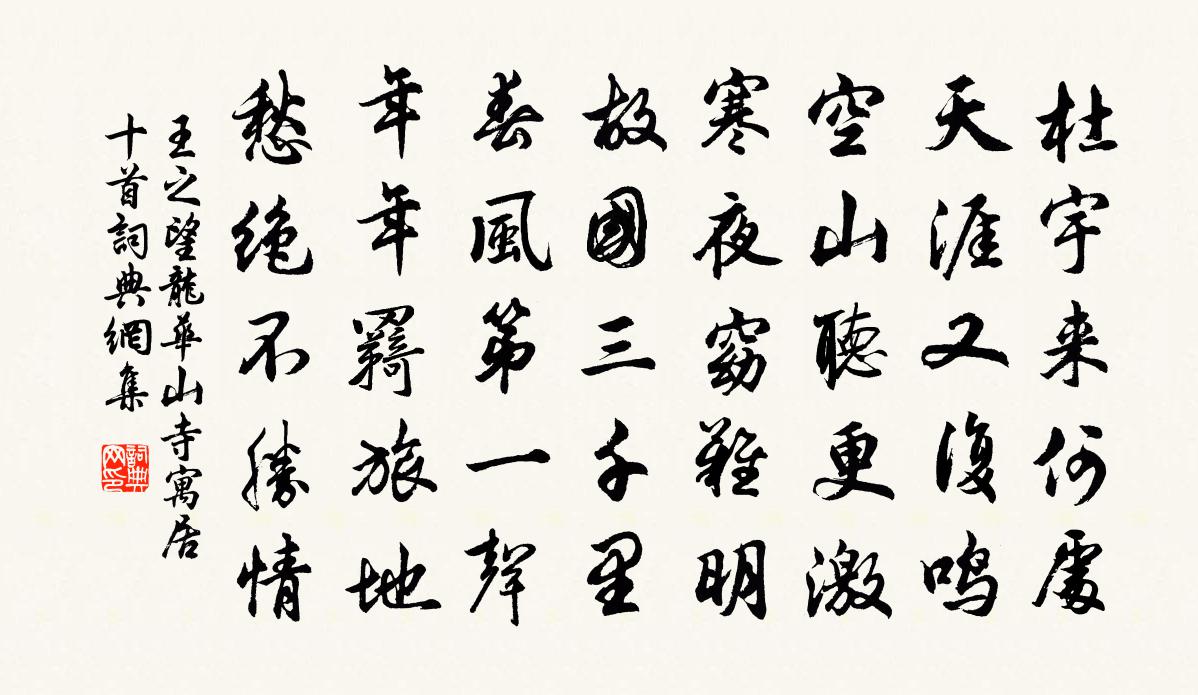 杜宇来何處
天涯又復鸣
空山聽更激
寒夜窈難明
故國三千里
春風第一聲
年年羇旅地
愁絶不勝情
王之望龍華山寺寓居
十首詞典網集
詞典
网印